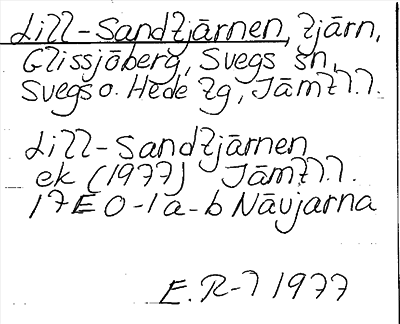 Lill-Sandtjärnen, tjärn,
Glissjöberg, Svegs sn,
Svegs o. Hede tg, Jämtl.l.
Lill-Sandtjärnen
ek (1977) Jämtl.l.
17E 0-1a-b Nävjarna
E.R-l 1977